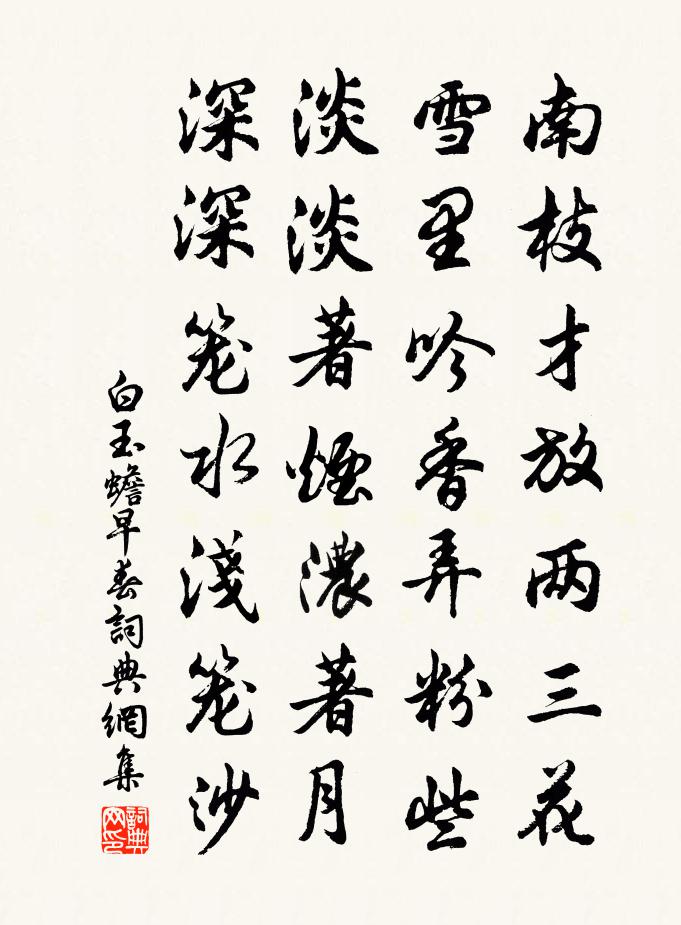 南枝才放两三花
雪里吟香弄粉些
淡淡著煙濃著月
深深笼水淺笼沙
白玉蟾早春詞典網集
詞典网印